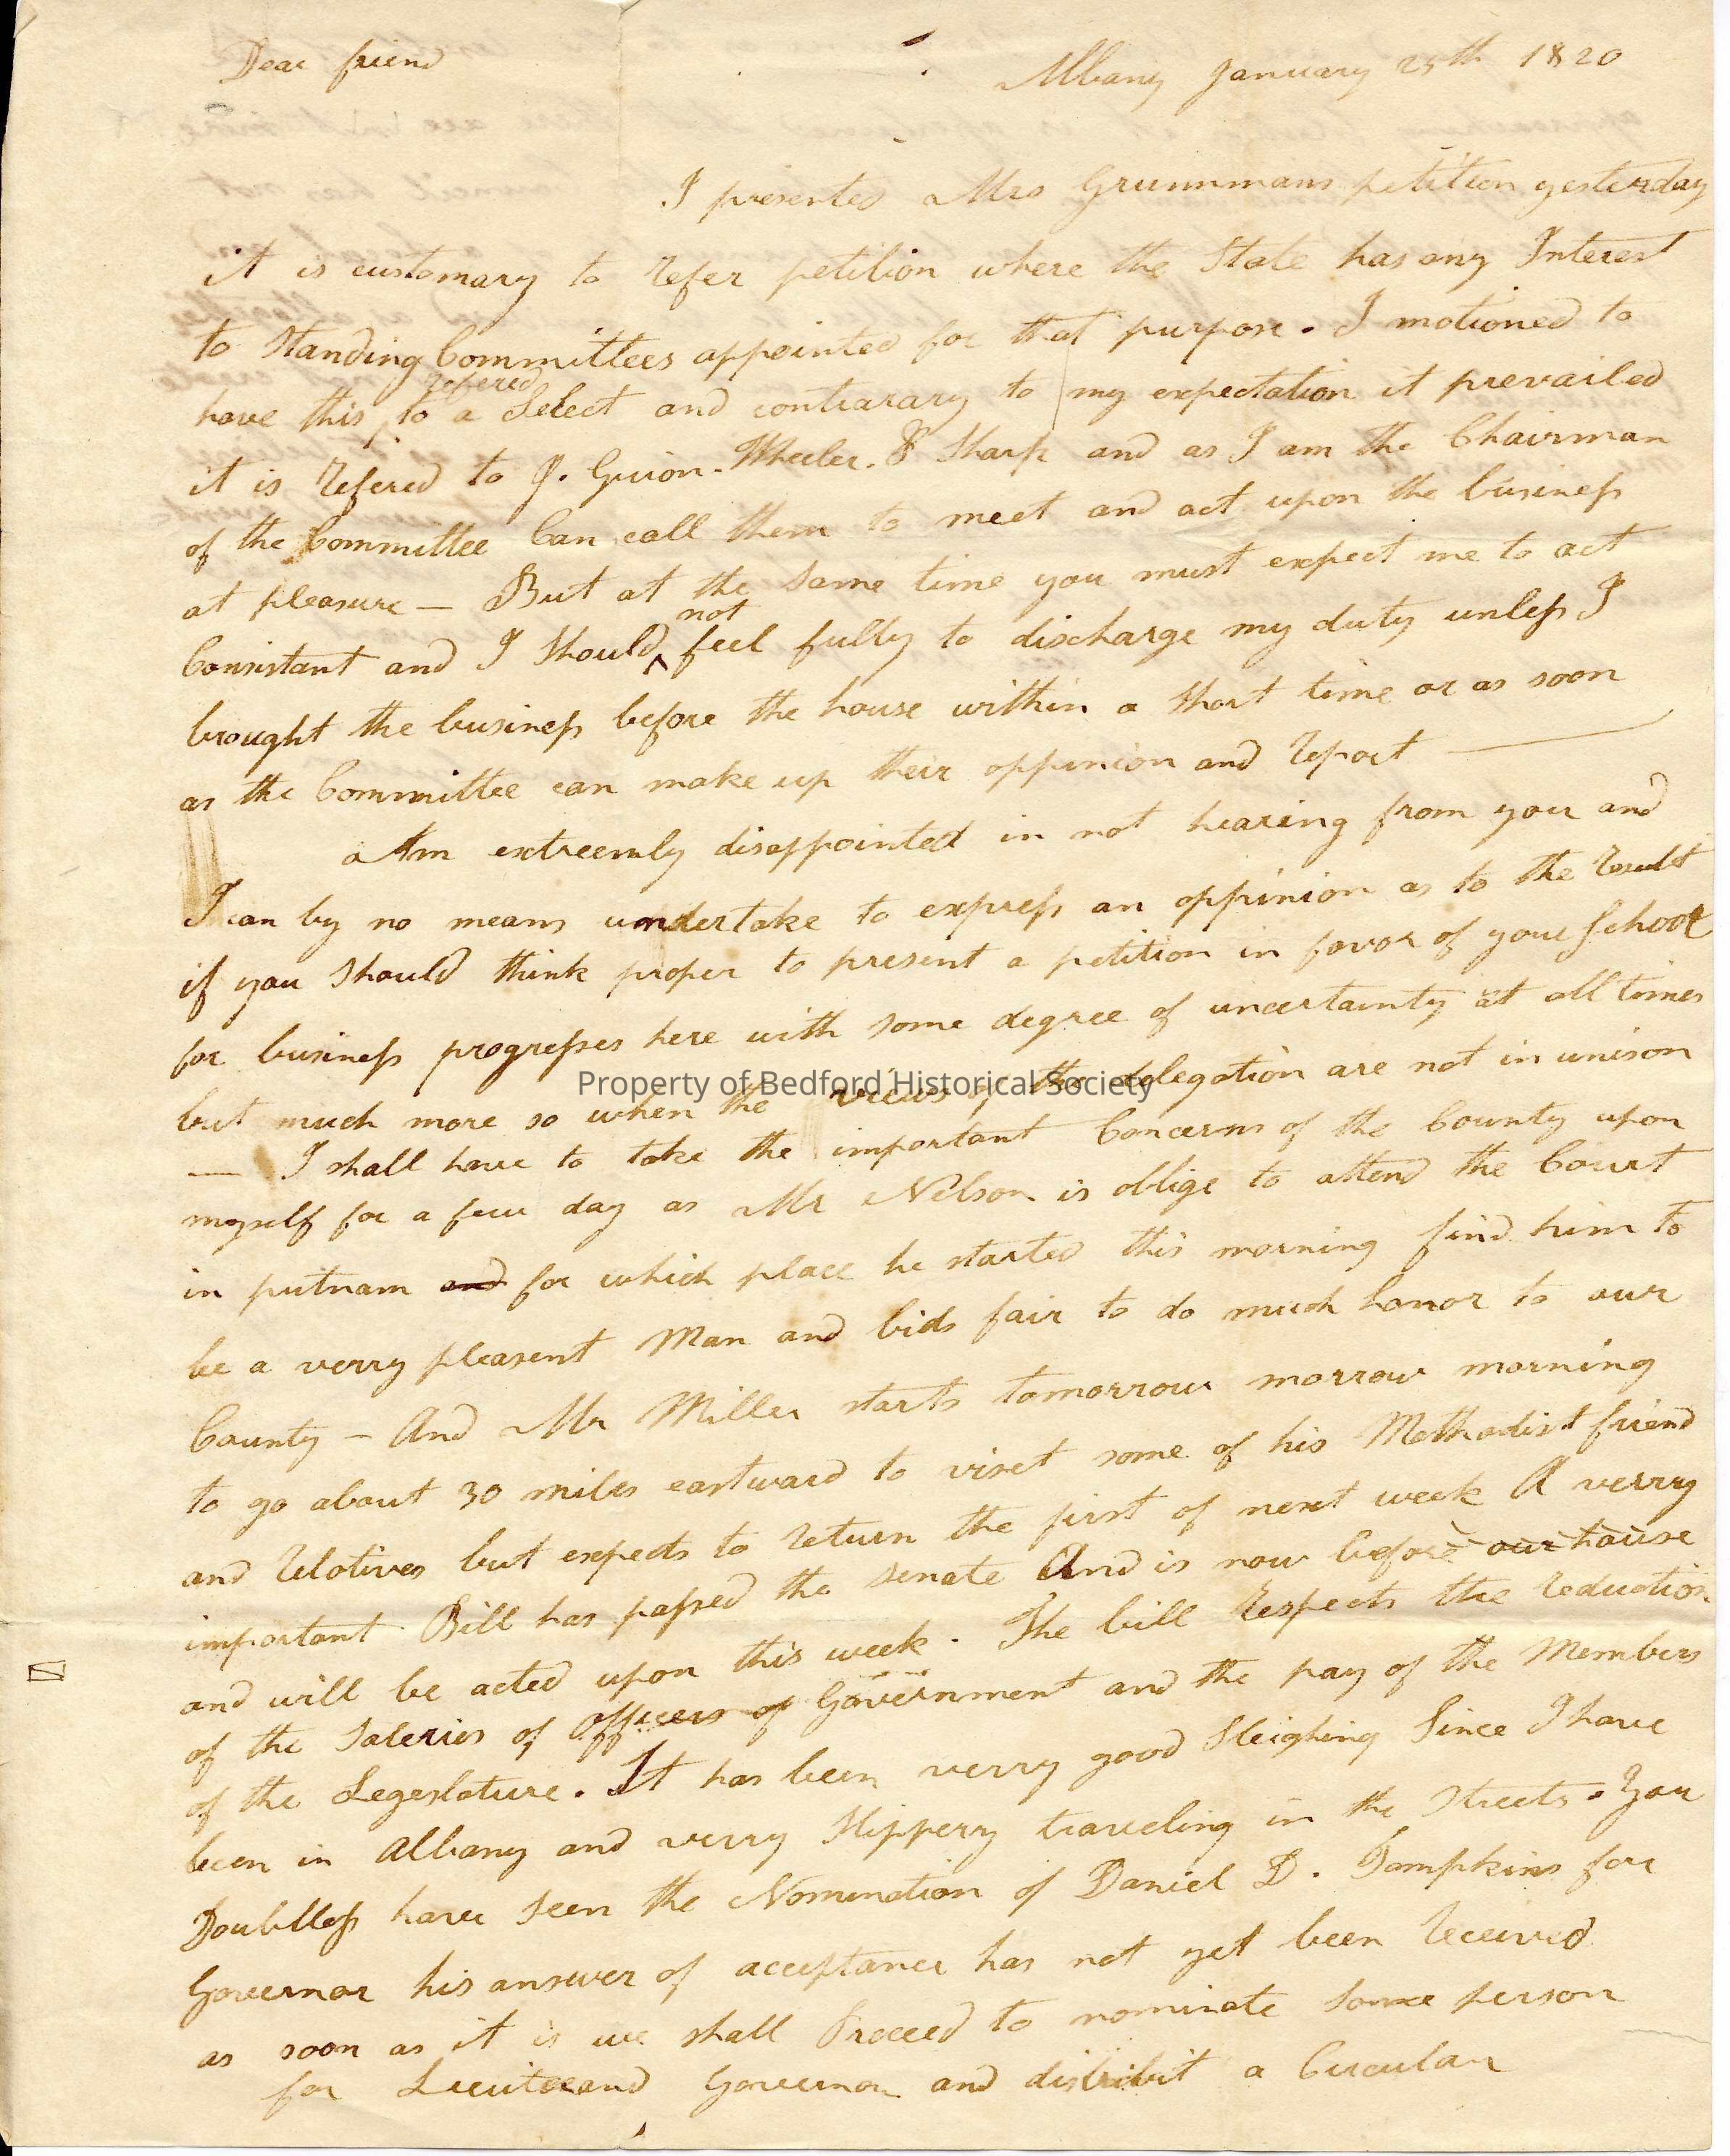 Dear friend
Albany January 25th 1820
I presented Mrs Grummans petition yesterday
it is customary to refer petition where the State has any Interest
to Standing Committees appointed for that purpose. I motioned to
refered
have this, to a Select and contrarary to my expectation it prevailed
it is Refered to J. Guion. Wheeler. & Sharp and as I am the Chairman
of the Committee Can call them to meet and act upon the business
at pleasure — But at the Same time you must expect me to act
not
Consistant and I Should ^ feel fully to discharge my duty unless I
brought the business before the house within a Short time or as soon
as the Committee can make up their oppinion and Report —
Am extreemly disappointed in not hearing from you and
I can by no means undertake to express an oppinion as to the Result
if you Should think proper to present a petition in favor of your School
for business progresses here with some degree of uncertainty at all times
but much more so when the views of the delegation are not in unison
Property of Bedford Historical Society
— I shall have to take the important Concerns of the County upon
myself for a few day as Mr Nelson is oblige to attend the Court
in putnam and for which place he started this morning find him to
be a verry pleasent Man and bids fair to do much honor to our
County – And Mr Miller starts tomorrow morrow morning
to go about 30 miles eastward to viset some of his Methodist friend
and Relatives but expects to Return the first of next week A verry
important Bill has passed the senate And is now before our house
and will be acted upon this week. The bill Respects the Reduction
of the Saleries of Officers of Government and the pay of the Members
of the Legeslature. It has been verry good Sleighing Since I have
been in Albany and verry Slippery traveling in the Streets. You
Doubtless have seen the Nomination of Daniel D. Tompkins for
Governor his answer of acceptance has not yet been Received
as soon as it is we shall Proceed to nominate some person
for Governor and distribit a Circular